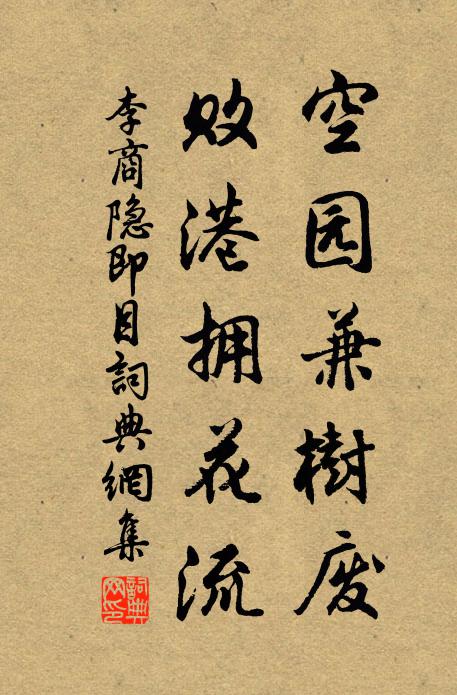 空园兼樹废
败港拥花流
李商隐即目詞典網集
詞典网印